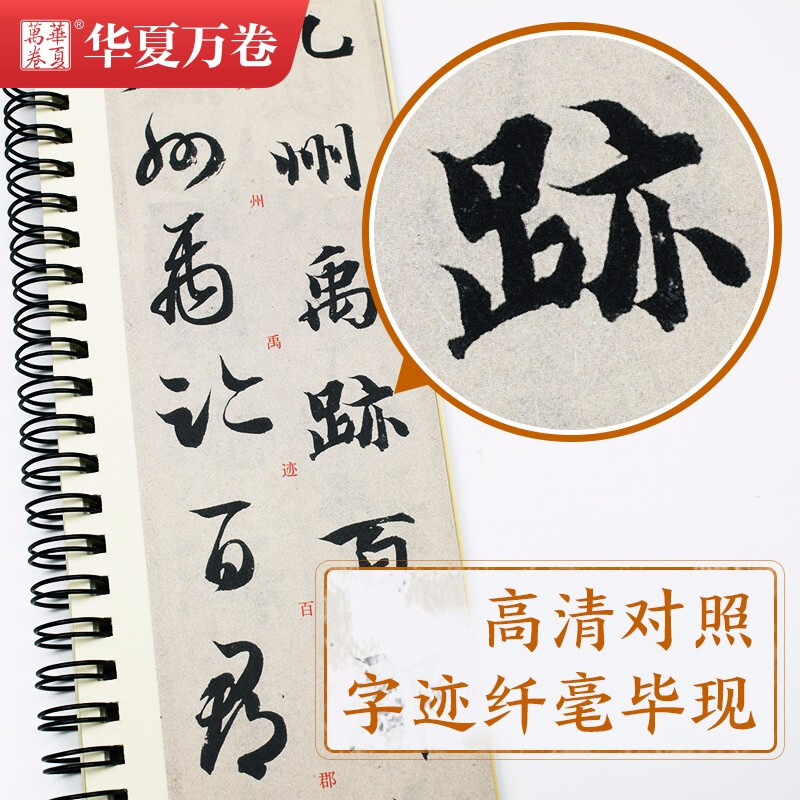 華夏
萬卷
®
华夏万卷
州禹跡百
州禹迹百郡
州
禹
迹
百
郡
跡
高清对照
字迹纤毫毕现